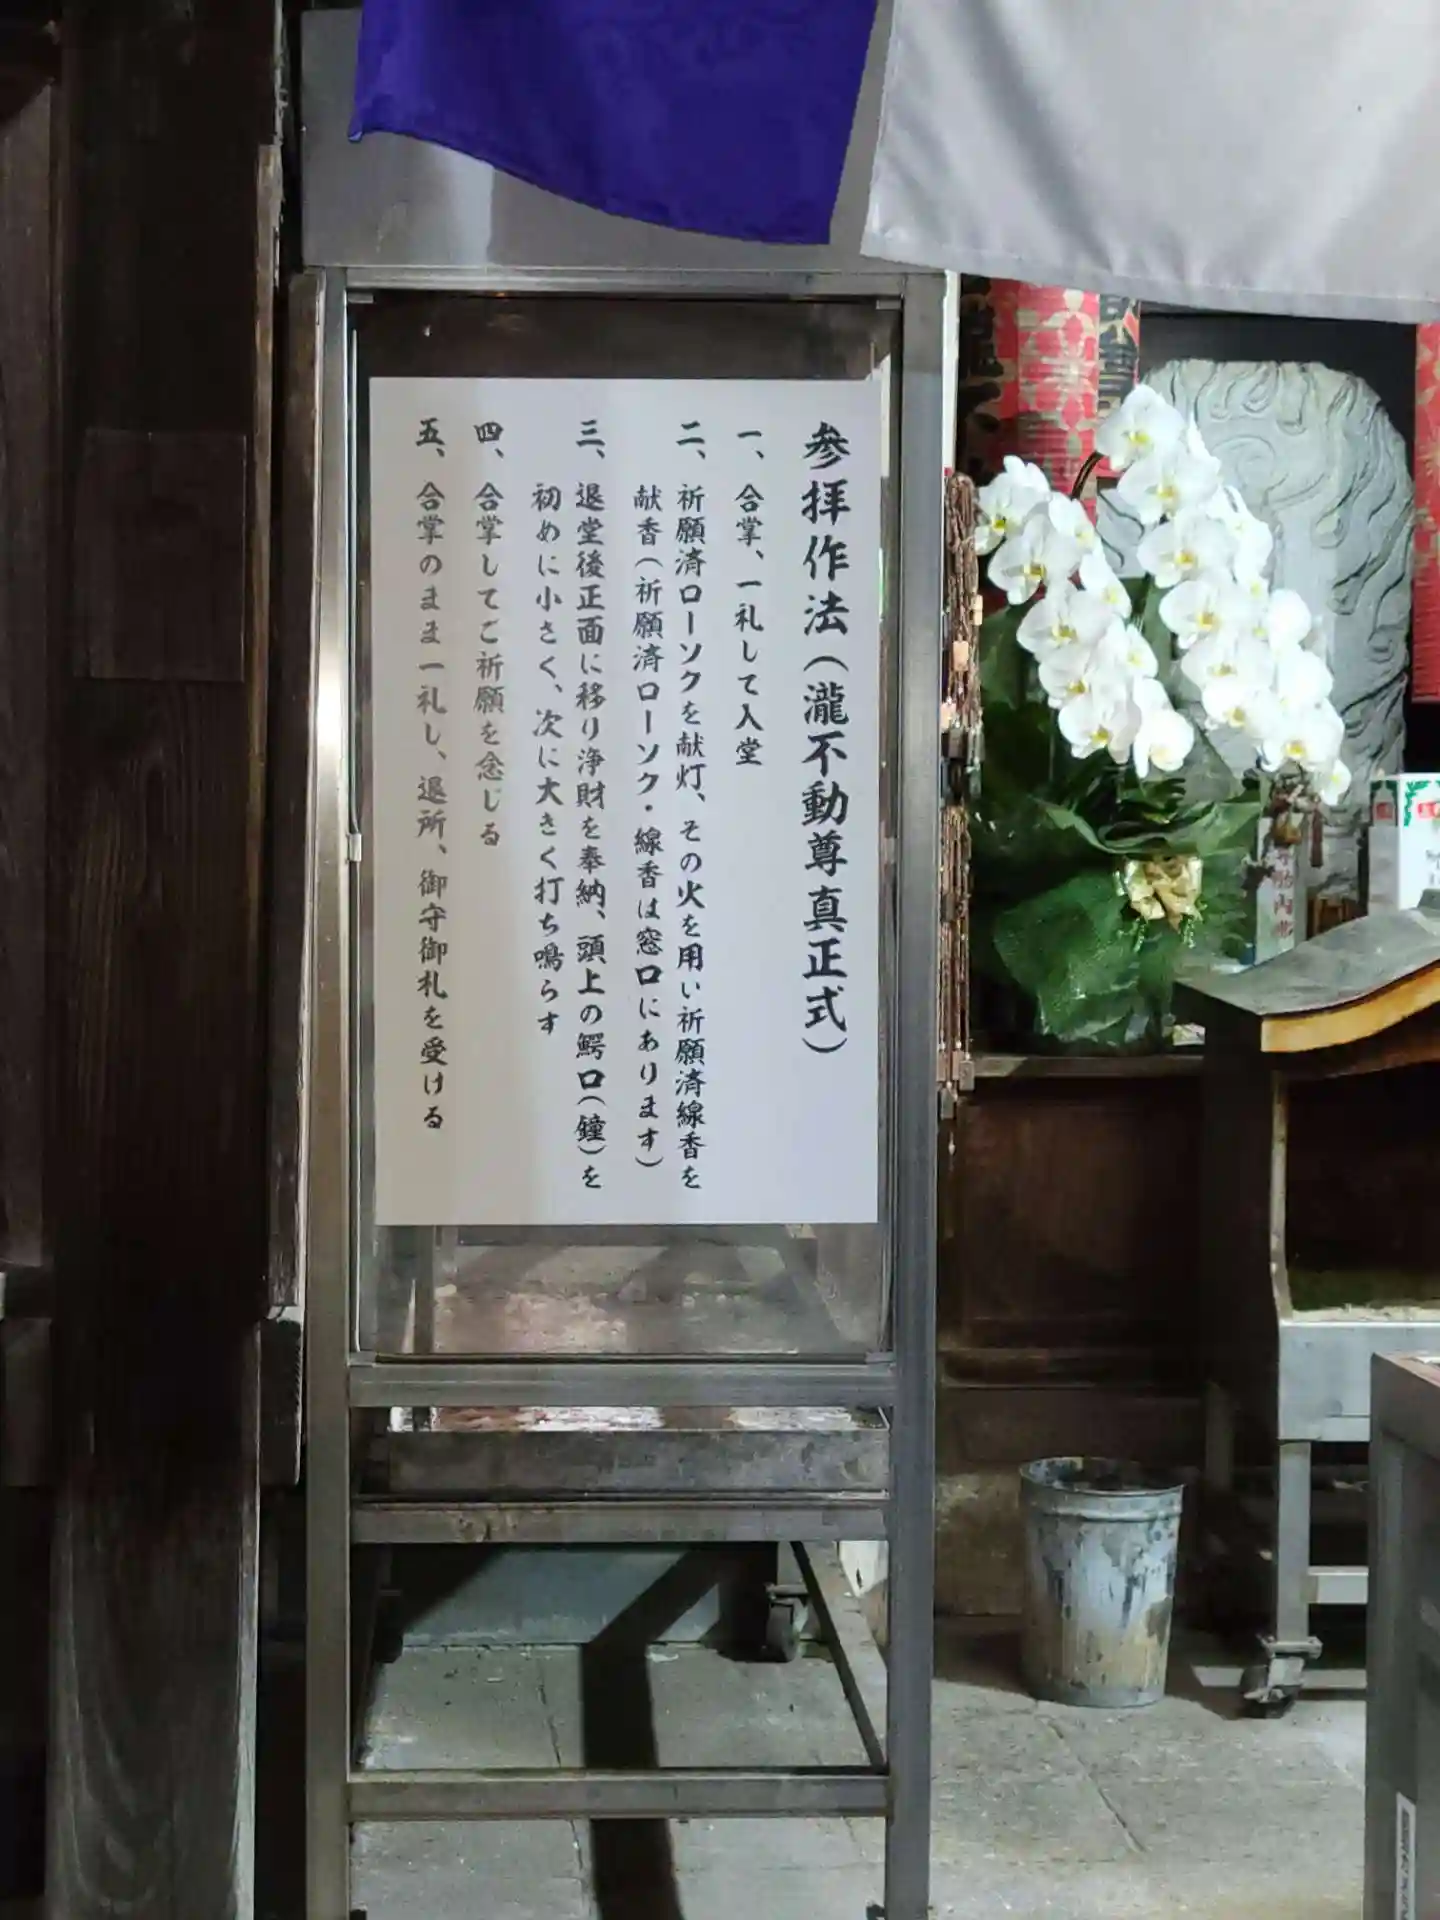 参拝作法(瀧不動尊真正式)
一、合掌、一礼して入堂
二、祈願済ローソクを献灯、その火を用い祈願済線香を
献香(祈願済ローソク・線香は窓口にあります)
三、退堂後正面に移り浄財を奉納、頭上の鰐口(鐘)を
初めに小さく、次に大きく打ち鳴らす
四、合掌してご祈願を念じる
五、合掌のまま一礼し、退所、御守御札を受ける